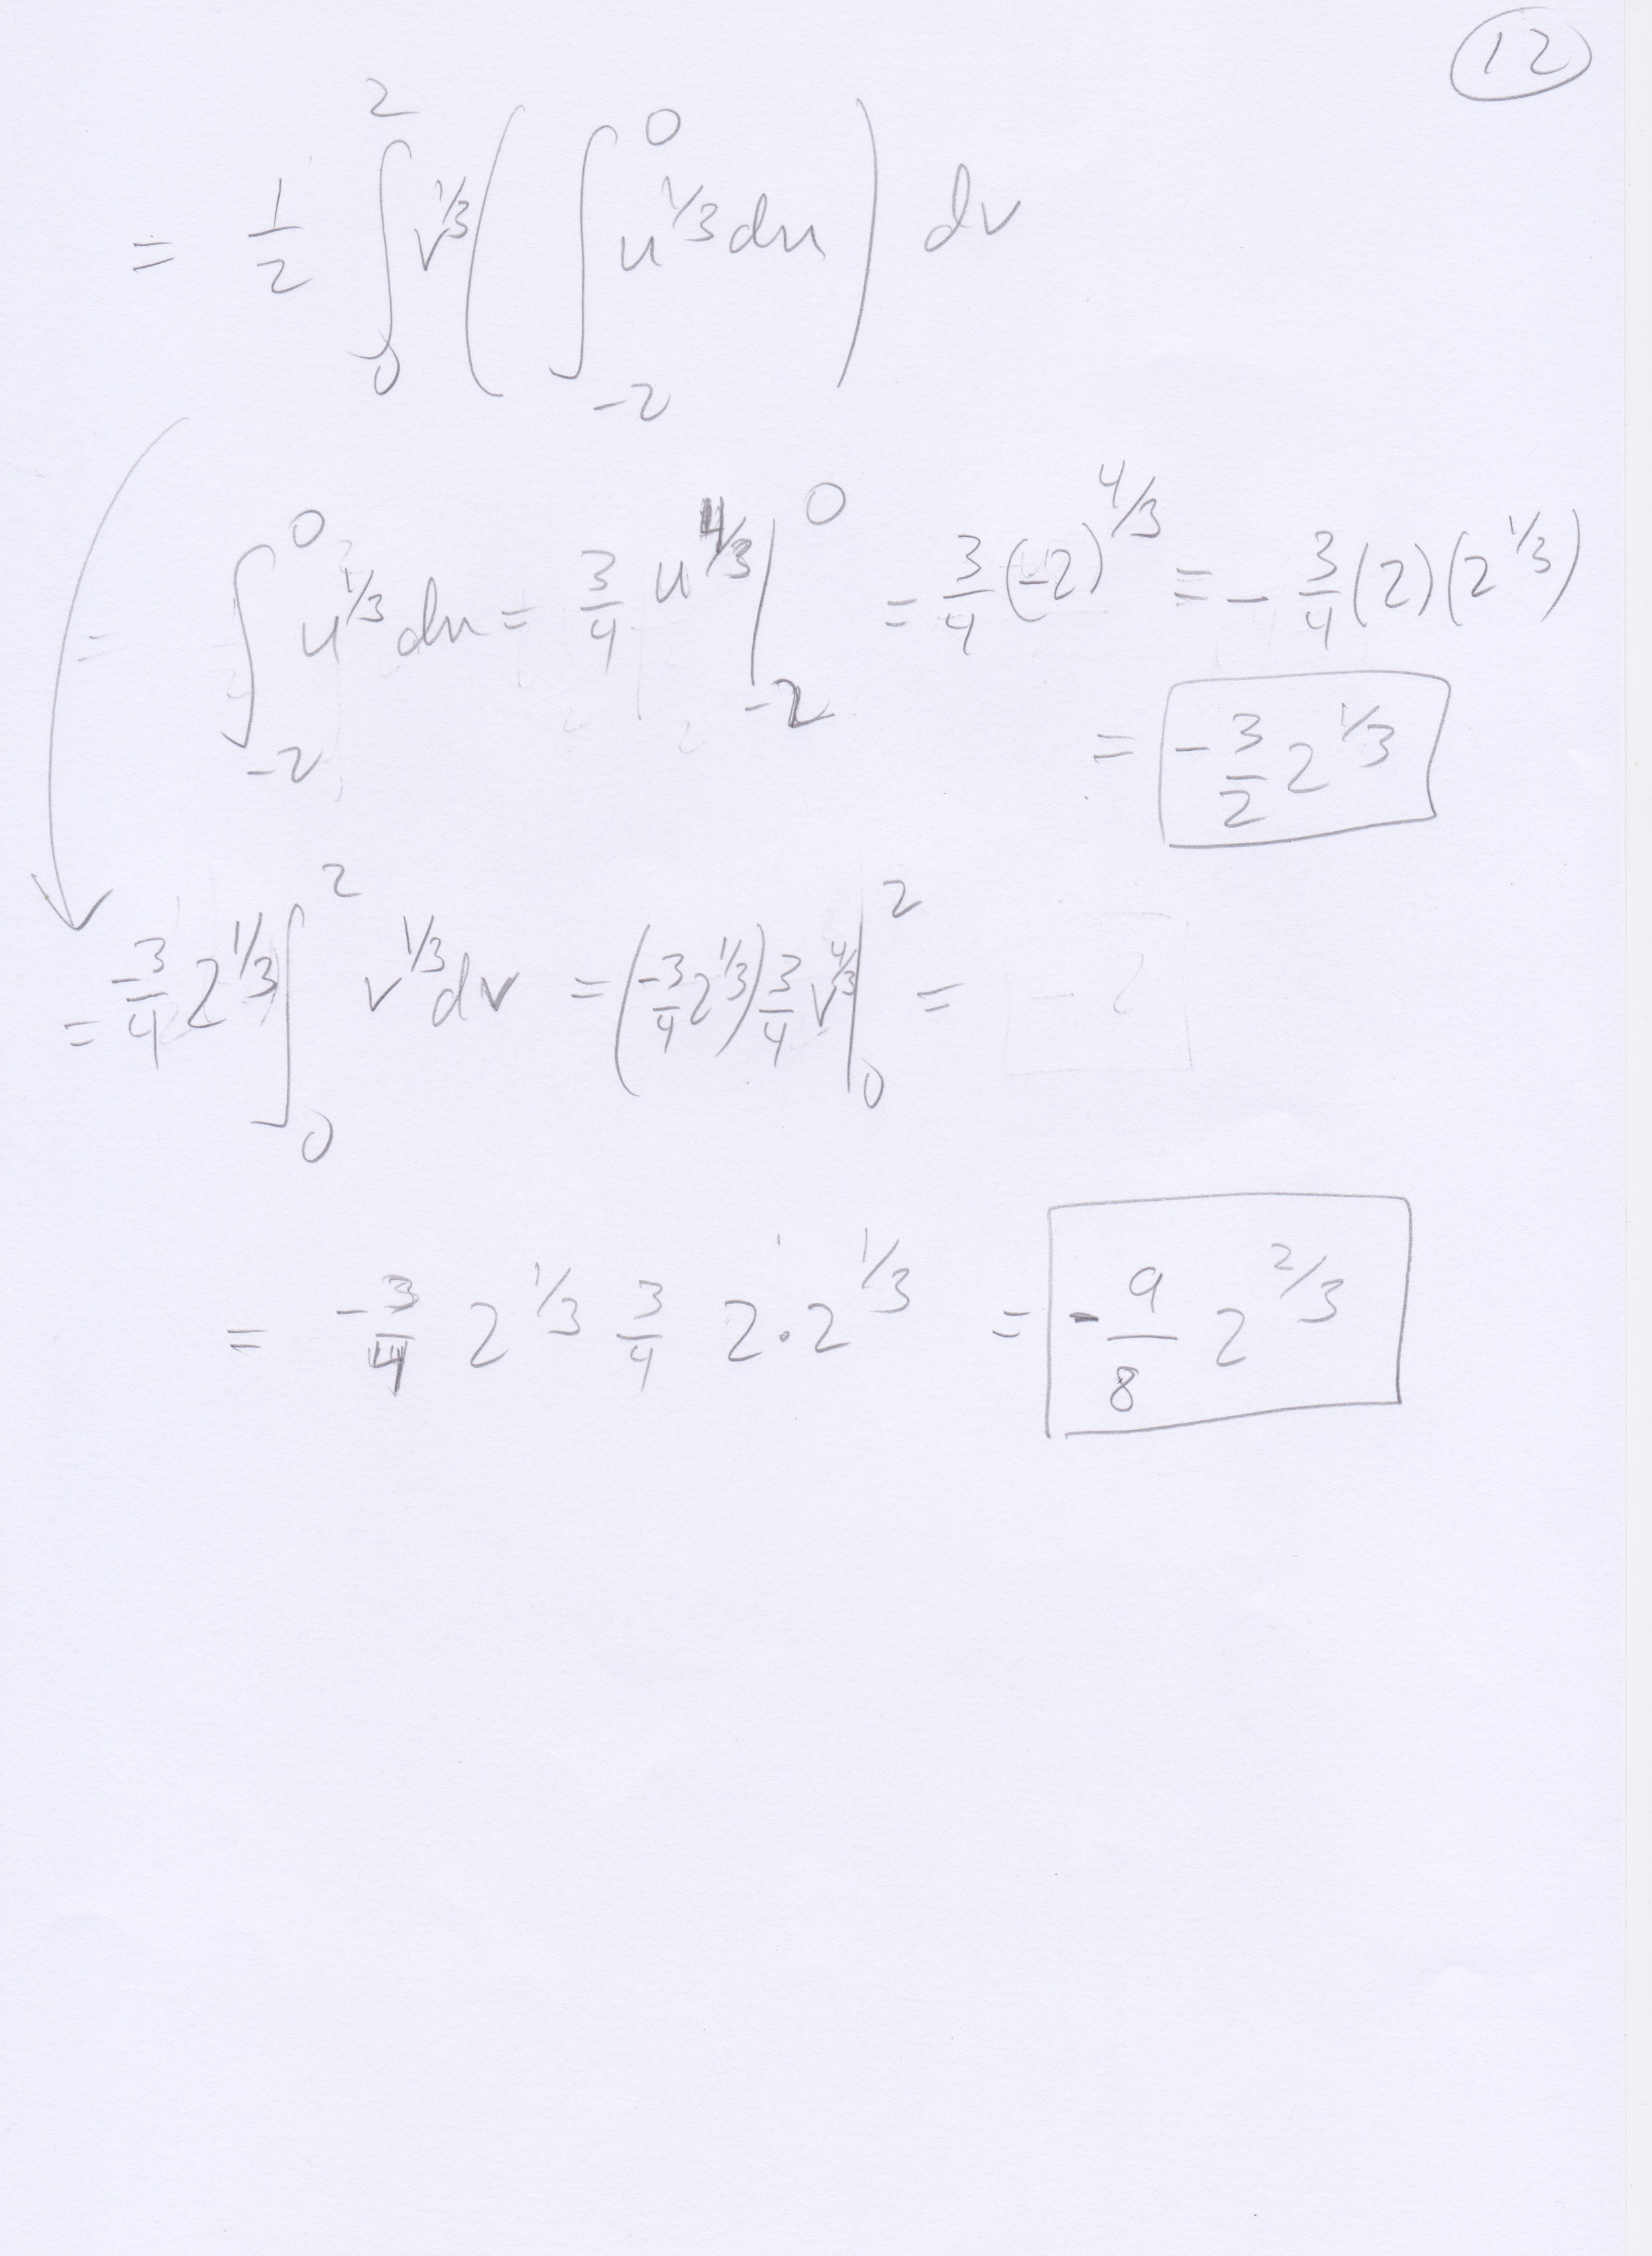 12
= 1/2 ∫_0^2 v^{1/3} ( ∫_{-2}^0 u^{1/3} du ) dv
= ∫_{-2}^0 u^{1/3} du = 3/4 u^{4/3} |_{-2}^0 = 3/4 (-2)^{4/3} = - 3/4 (2)(2^{1/3})
= - 3/2 2^{1/3}
= -3/4 2^{1/3} ∫_0^2 v^{1/3} dv = (-3/4 2^{1/3}) 3/4 v^{4/3} |_0^2 =
= -3/4 2^{1/3} 3/4 2·2^{1/3} = - 9/8 2^{2/3}